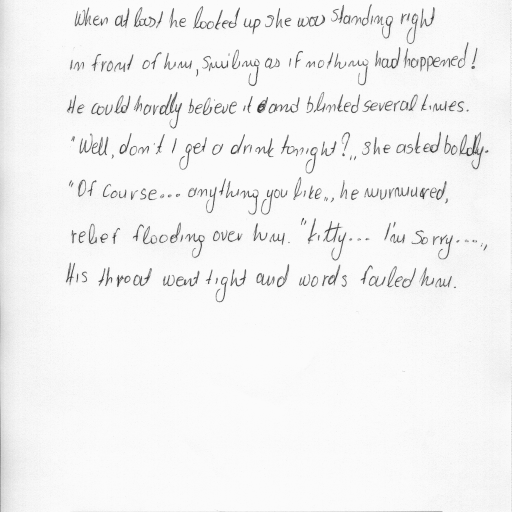 When at last he looked up she was standing right
in front of him, smiling as if nothing had happened!
He could hardly believe it and blinked several times.
"Well, don't I get a drink tonight?„ she asked boldly.
"Of course... anything you like„, he murmured,
relief flooding over him. "Kitty... I'm sorry....„
His throat went tight and words failed him.